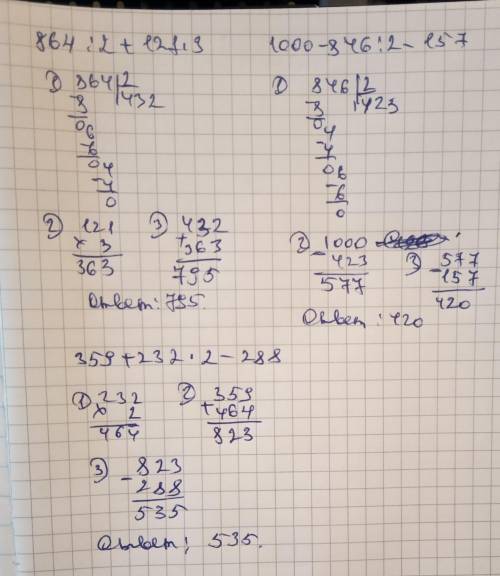 864 : 2 + 121 · 3
1) 864 | 2
8 432
06
6
04
4
0
2) 121
× 3
363
3) 432
+ 363
795
Ответ: 795.
1000 - 846 : 2 - 157
1) 846 | 2
8 423
04
4
06
6
0
2) 1000
- 423
577
3) 577
- 157
420
Ответ: 420
359 + 232 · 2 - 288
1) 232
× 2
464
2) 359
+ 464
823
3) - 823
288
535
Ответ: 535.